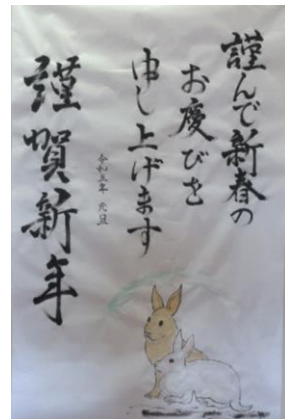 謹んで新春の
お慶びを
申し上げます
令和五年 元旦
謹賀新年